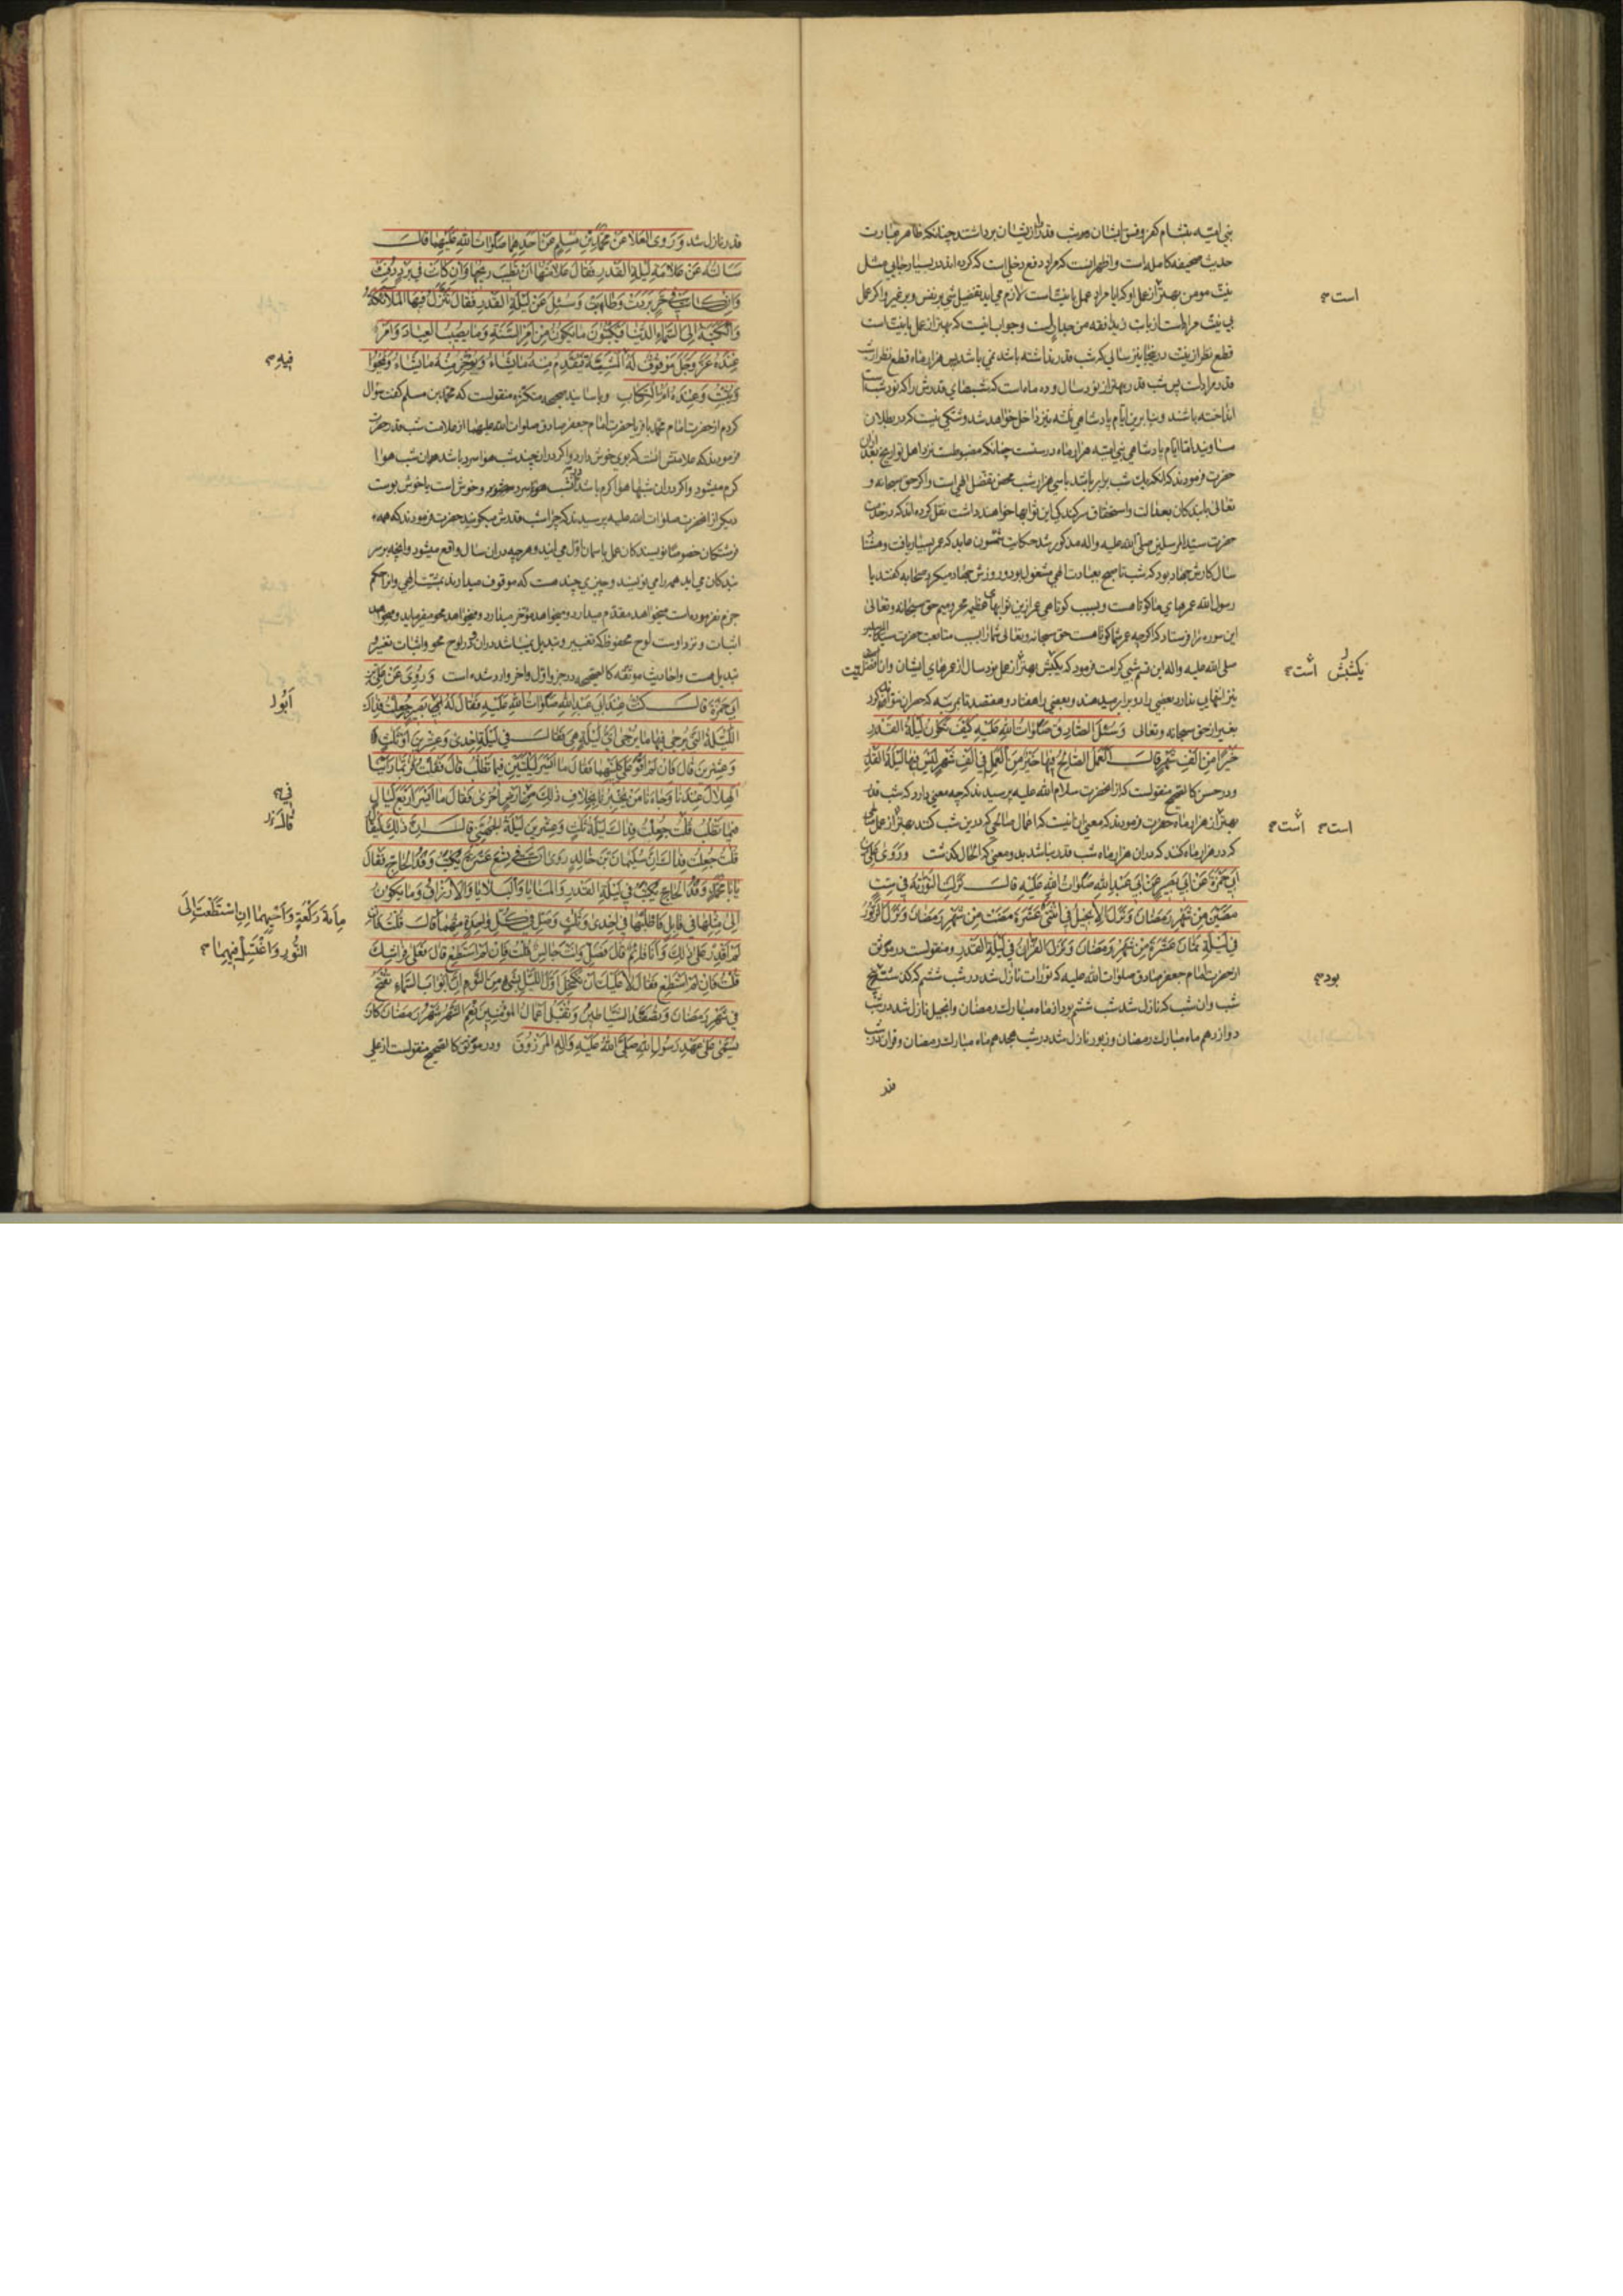 بنی امیه بشام کفر و فسق ایشان شب قدر را از ایشان برداشتند چنانکه ظاهر عبارت
حدیث صحیفه کامله است و اظهر آنست که مراد دفع دخلی است که کرده اند در بسیار جایی مثل
نیت مومن بهتر از عمل او که ایا مراد عمل با نیت است لازم می آید تفضیل شی بر نفس و بر غیر و اکر عمل
بی نیت مراد است از باب و جواب اینست که بهتر از عمل با نیت است
قطع نظر از نیت در اینجا نیز سالی که شب قدر نداشته باشد نمی باشد پس هزار ماه قطع نظر از شب
قدر مراد است پس شب قدر بهتر از نود سال و ده ماه است که شبهای قدرش را که نود شب است
انداخته باشند و بنا برین ایام پادشاهی نیز داخل خواهد شد و شکی نیست که در بطلان
اما ایام پادشاهی بنی امیه هزار ماه درست چنانکه مضبوط است نزد اهل تواریخ بعد از ان
حضرت فرمودند که انکه یک شب برابر باشد با سی هزار شب محض تفضل الهی است و اکر حق سبحانه و
تعالی با بندکان بعدالت و استحقاق سر کند کی این ثوابها خواهند داشت نقل کرده اند که در خدمت
حضرت سید المرسلین صلی الله علیه و اله مذکور شد حکایت شمسون عابد که عمر بسیار یافت و هشتاد
سال کارش جهاد بود که شب تا صبح بعبادت الهی مشغول بود و روزش جهاد میکرد صحابه کفتند یا
رسول الله عمرهای ما کوتاهست و بسبب کوتاهی عمر ازین ثوابهای عظیمه محرومیم حق سبحانه و تعالی
این سوره را فرستاد که اکرچه عمر شما کوتاهست حق سبحانه و تعالی شما را بسبب متابعت حضرت سید المرسلین
صلی الله علیه و اله این قسم شبی کرامت فرمود که یکشبش بهتر از عمل نود سال از عمرهای ایشان و ان تفضل نیست
نیز انتهایی ندارد بعضی را دو برابر میدهند و بعضی را هفتاد و هفتصد تا بمرتبه که حصر ان نتواند کرد
بغیر از حق سبحانه و تعالی وَسُئِلَ الصّادِقُ صَلَواتُ اللهِ عَلَیْهِ کَیْفَ تَکُونُ لَیْلَةُ القَدْرِ
خَیْرًا مِنْ اَلْفِ شَهْرٍ قالَ اَلْعَمَلُ الصّالِحُ فِیها خَیْرٌ مِنَ الْعَمَلِ فِی اَلْفِ شَهْرٍ لَیْسَ فِیها لَیْلَةُ القَدْرِ
و در حسن کالصحیح منقولست که از انحضرت سلام الله علیه پرسیدند که چه معنی دارد که شب قدر
بهتر از هزار ماه حضرت فرمودند که معنی ان اینست که اعمال صالحی که درین شب کنند بهتر از عمل صالحی
که در هزار ماه کنند که در ان هزار ماه شب قدر نباشد بدو معنی که الحال کذشت وَرَوَی عَلِیُّ بْنُ
اَبِی حَمْزَةَ عَنْ اَبِی بَصِیرٍ عَنْ اَبِی عَبْدِ اللهِ صَلَواتُ اللهِ عَلَیْهِ قالَ نَزَلَتِ التَّوْریةُ فِی سِتٍّ
مَضَیْنَ مِنْ شَهْرِ رَمَضانَ وَنَزَلَ الاِنْجِیلُ فِی اثْنَتَیْ عَشْرَةَ مَضَتْ مِنْ شَهْرِ رَمَضانَ وَنَزَلَ الزَّبُورُ
فِی لَیْلَةِ ثَمانَ عَشْرَةَ مِنْ شَهْرِ رَمَضانَ وَنَزَلَ القُرْانُ فِی لَیْلَةِ القَدْرِ و منقولست در موثق
از حضرت امام جعفر صادق صلوات الله علیه که تورات نازل شد در شب ششم که کذشت پنج
شب و ان شب که نازل شد شب ششم بود از ماه مبارک رمضان و انجیل نازل شد در شب
دوازدهم ماه مبارک رمضان و زبور نازل شد در شب هجدهم ماه مبارک رمضان و قران در شب
قدر
است
یکشبش است
است است
بود
قدر نازل شد وَرَوَی العَلا عَنْ مُحَمَّدِ بْنِ مُسْلِمٍ عَنْ اَحَدِهِما صَلَواتُ اللهِ عَلَیْهِما قالَ
سَاَلْتُهُ عَنْ عَلامَةِ لَیْلَةِ القَدْرِ فَقالَ عَلامَتُها اَنْ تَطِیبَ رِیحُها وَاِنْ کانَتْ فِی بَرْدٍ دَفِئَتْ
وَاِنْ کانَتْ فِی حَرٍّ بَرَدَتْ وَطابَتْ وَسُئِلَ عَنْ لَیْلَةِ القَدْرِ فَقالَ تَنَزَّلُ فِیهَا المَلائِکَةُ
وَالکَتَبَةُ اِلَی السَّماءِ الدُّنْیا فَیَکْتُبُونَ ما یَکُونُ مِنْ اَمْرِ السَّنَةِ وَما یُصِیبُ العِبادَ وَاَمْرٌ
عِنْدَهُ عَزَّ وَجَلَّ مَوْقُوفٌ لَهُ المَشِیَّةُ فَیُقَدِّمُ مِنْهُ ما یَشاءُ وَیُؤَخِّرُ مِنْهُ ما یَشاءُ وَیَمْحُوا
وَیُثْبِتُ وَعِنْدَهُ اُمُّ الْکِتابِ و باسانید صحیحه متکثره منقولست که محمد بن مسلم کفت سوال
کردم از حضرت امام محمد باقر یا حضرت امام جعفر صادق صلوات الله علیهما از علامت شب قدر حضرت
فرمودند که علامتش انست که بوی خوش دارد و اکر در ان چند شب هوا سرد باشد همان شب هوا
کرم میشود و اکر در ان شبها هوا کرم باشد در ان شب هوا سرد میشود و خوش است یا خوش بوست
دیکر از انحضرت صلوات الله علیه پرسیدند که چرا شب قدرش میکویند حضرت فرمودند که همه
فرشتکان خصوصا نویسندکان عمل باسمان اول می ایند و هر چه در ان سال واقع میشود و انچه بر سر
بندکان می اید همه را می نویسند و چیزی چند هست که موقوف میدارند بمشیت الهی و انرا حکم
جزم نفرموده است میخواهد مقدم میدارد و میخواهد مؤخر میدارد و میخواهد محو میفرماید و میخواهد
اثبات و نزد اوست لوح محفوظ که تغییر و تبدیل نمیباشد در ان و در لوح محو و اثبات تغییر و
تبدیل هست و احادیث موثقه کالصحیحه در جزو اول و اخر وارد شده است وَرُوِیَ عَنْ عَلِیِّ بْنِ
اَبِی حَمْزَةَ قالَ کُنْتُ عِنْدَ اَبِی عَبْدِ اللهِ صَلَواتُ اللهِ عَلَیْهِ فَقالَ لَهُ بَصِیرٍ جُعِلْتُ فِداکَ
اللَّیْلَةُ الَّتِی یُرْجی فِیها ما یُرْجی اَیُّ لَیْلَةٍ هِیَ فَقالَ فِی لَیْلَةِ اِحْدی وَعِشْرِینَ اَوْ ثَلثٍ
وَعِشْرِینَ قالَ فَاِنْ لَمْ اَقْوَ عَلی کِلْتَیْهِما فَقالَ ما اَیْسَرَ لَیْلَتَیْنِ فِیما تَطْلُبُ قالَ فَقُلْتُ فَرُبَّما رَاَیْنَا
الهِلالَ عِنْدَنا وَجاءَنا مَنْ یُخْبِرُنا بِخِلافِ ذلِکَ مِنْ اَرْضٍ اُخْری فَقالَ ما اَیْسَرَ اَرْبَعَ لَیالٍ
فِیما تَطْلُبُ قُلْتُ جُعِلْتُ فِداکَ لَیْلَةُ ثَلثٍ وَعِشْرِینَ لَیْلَةُ الجُهَنِیِّ قالَ اِنَّ ذلِکَ لَیُقالُ
قُلْتُ جُعِلْتُ فِداکَ اِنَّ سُلَیْمانَ بْنَ خالِدٍ رَوی اَنَّ فِی تِسْعَ عَشْرَةَ یُکْتَبُ وَفْدُ الحاجِّ فَقالَ
یا اَبا مُحَمَّدٍ وَفْدُ الحاجِّ یُکْتَبُ فِی لَیْلَةِ القَدْرِ وَالمَنایا وَالبَلایا وَالاَرْزاقُ وَما یَکُونُ
اِلی مِثْلِها فِی قابِلٍ فَاطْلُبْها فِی اِحْدی وَثَلثٍ وَصَلِّ فِی کُلِّ واحِدَةٍ مِنْهُما قالَ قُلْتُ فَاِنْ
لَمْ اَقْدِرْ عَلی ذلِکَ وَاَنَا قائِمٌ قالَ فَصَلِّ وَاَنْتَ جالِسٌ قُلْتُ فَاِنْ لَمْ اَسْتَطِعْ قالَ فَعَلی فِراشِکَ
قُلْتُ فَاِنْ لَمْ اَسْتَطِعْ فَقالَ لا عَلَیْکَ اَنْ تَکْتَحِلَ اَوَّلَ اللَّیْلِ بِشَیْءٍ مِنَ النَّوْمِ اِنَّ اَبْوابَ السَّماءِ تُفَتَّحُ
فِی شَهْرِ رَمَضانَ وَتُصَفَّدُ الشَّیاطِینُ وَتُقْبَلُ اَعْمالُ المُؤْمِنِینَ نِعْمَ الشَّهْرُ شَهْرُ رَمَضانَ کانَ
یُسَمّی عَلی عَهْدِ رَسُولِ اللهِ صَلَّی اللهُ عَلَیْهِ وَالِهِ المَرْزُوقَ و در موثق کالصحیح منقولست از علی
فِیهِ
اَبُو
فِیهِ
قالَ
مِاَةَ رَکْعَةٍ وَاَحْیِهِما اِنِ اسْتَطَعْتَ اِلَی
النُّورِ وَاغْتَسِلْ فِیهِما